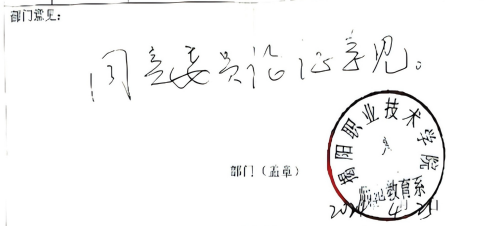 部门意见:
同意委员论证意见。
部门(盖章)
揭阳职业技术学院
教育系